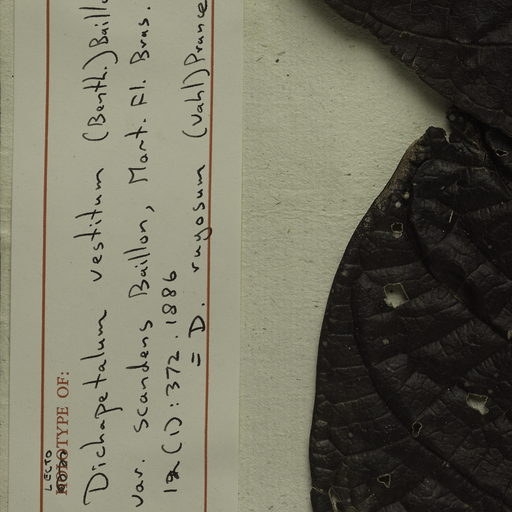 LECTO
TYPE OF:
Dichapetalum vestitum (Benth.) Baill
var. scandens Baillon, Mart. Fl. Bras.
12(1):372. 1886
= D. rugosum (Vahl) Prance